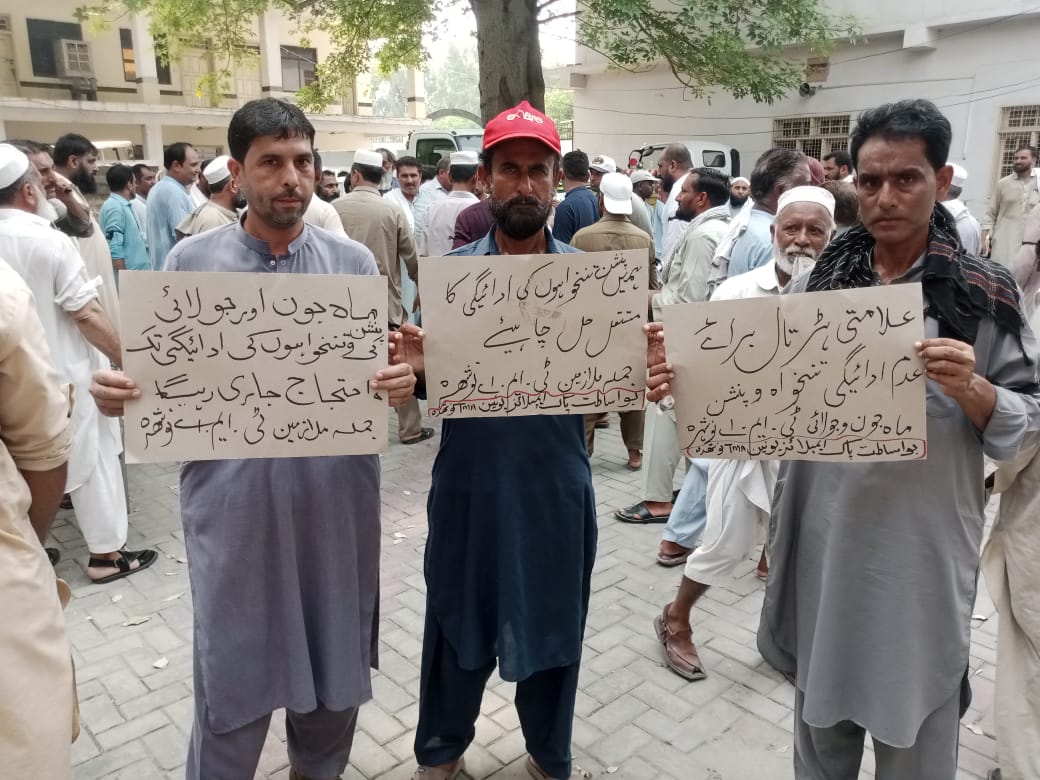 ماہ جون اور جولائی
کی پنشن و تنخواہوں کی ادائیگی تک
احتجاج جاری رہیگا
جملہ ملازمین ٹی۔ایم۔اے نوشہرہ
ہمیں پنشن و تنخواہوں کی ادائیگی کا
مستقل حل چاہیئے
جملہ ملازمین ٹی۔ایم۔اے نوشہرہ
بواساطت پاک ایمپلائز یونین TMA نوشہرہ
علامتی ہڑتال براۓ
عدم ادائیگی تنخواہ و پنشن
ماہ جون و جولائی ٹی۔ایم۔اے نوشہرہ
بواساطت پاک ایمپلائز یونین TMA نوشہرہ